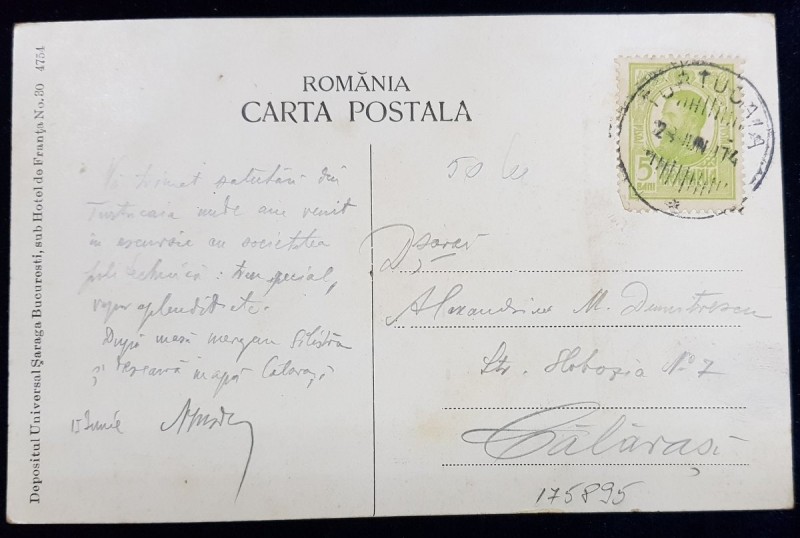 ROMÂNIA
CARTA POSTALA
Depositul Universal Șaraga Bucuresti, sub Hotel de Franța No. 30 4754
TURTUCAIA
23 JUN 914
5 BANI
50
Vă trimet salutări din
Turtucaia unde am venit
în excursie cu societatea
politehnică: tren special,
vapor splendid etc.
După masă mergem Silistra
și deseară Călărași
Iunie
Alexandrina M. Dumitrescu
Str. Slobozia No 7
Călărași
175895